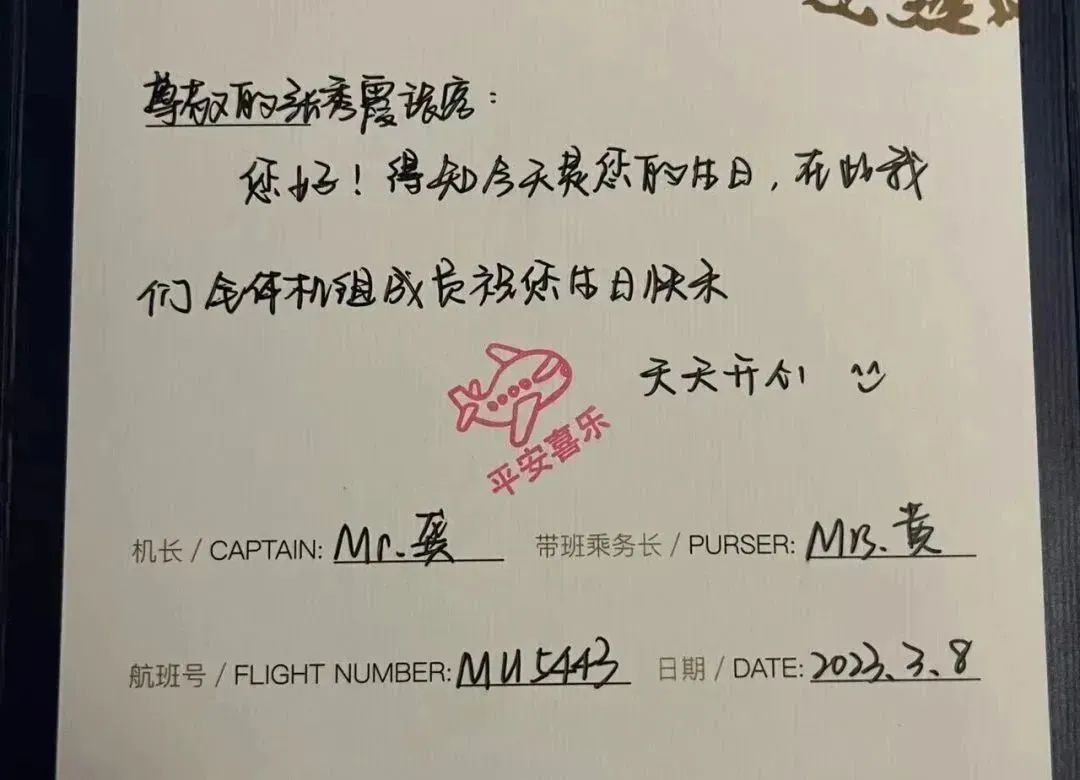 尊敬的张秀霞旅客：
您好！得知今天是您的生日，在此我
们全体机组成员祝您生日快乐
天天开心 ^^
平安喜乐
机长 / CAPTAIN: Mr. 龚
带班乘务长 / PURSER: Ms. 黄
航班号 / FLIGHT NUMBER: MU5443
日期 / DATE: 2023.3.8